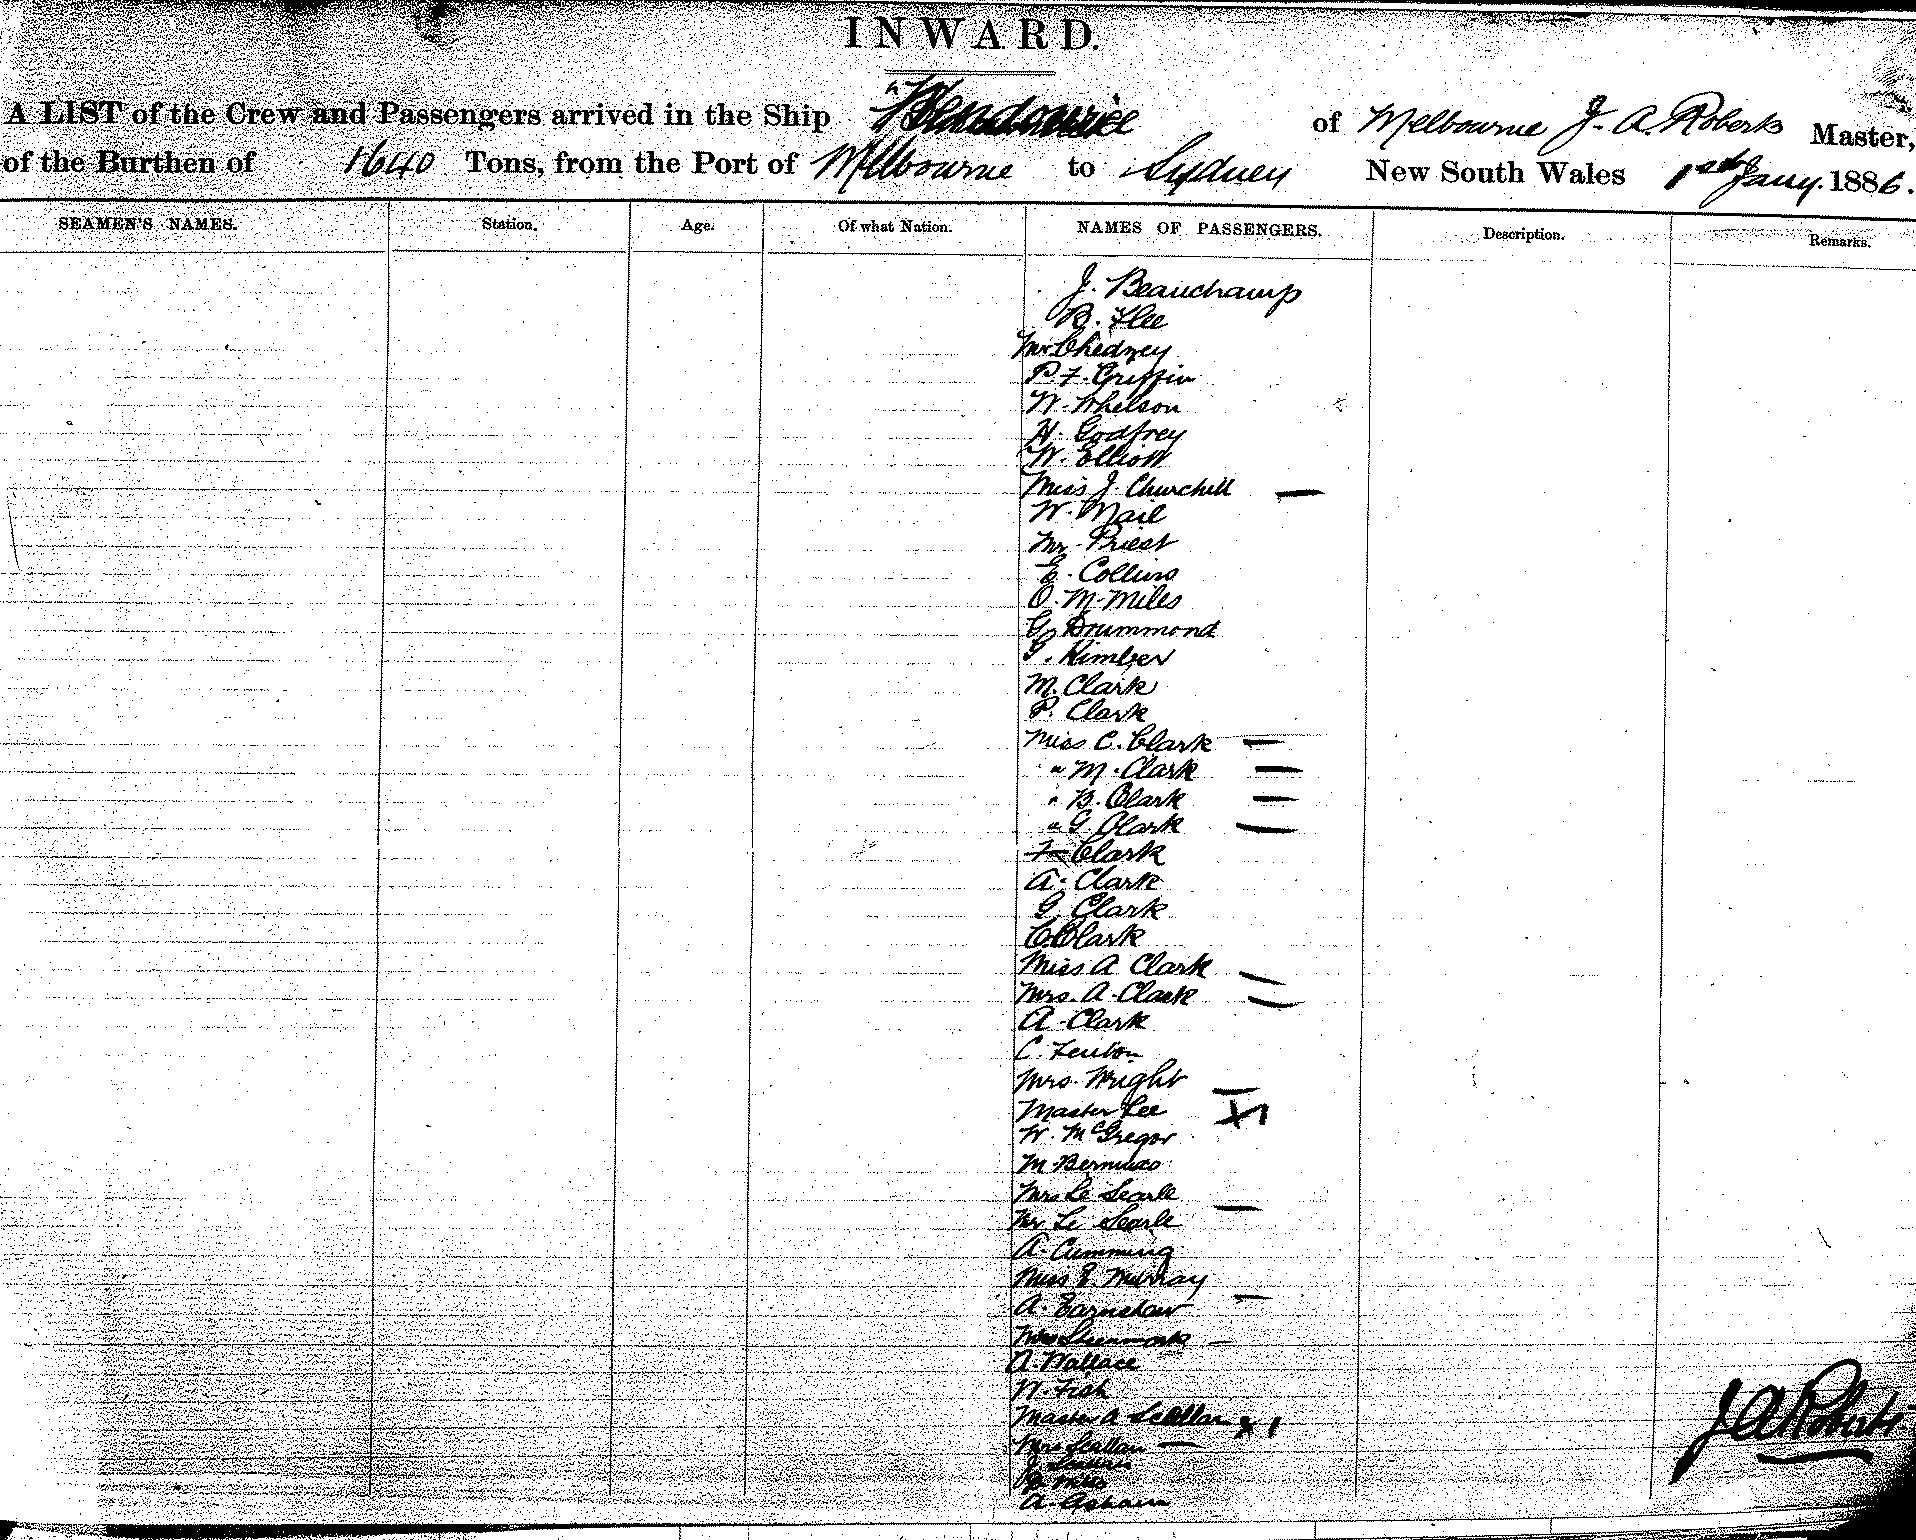 INWARD.
A LIST of the Crew and Passengers arrived in the Ship "Wendouree of Melbourne J. A. Roberts Master,
of the Burthen of 1640 Tons, from the Port of Melbourne to Sydney New South Wales 1st Jany. 1886.
SEAMEN'S NAMES. Station. Age. Of what Nation. NAMES OF PASSENGERS. Description. Remarks.
J. Beauchamp
B. Flee
Mr. Chedzey
P. F. Griffin
W. Whelson
H. Godfrey
W. Elliott
Miss J. Churchill —
W. Mail
Mr. Priest
E. Collins
O. M. Miles
G. Drummond
G. Kimber
M. Clark
P. Clark
Miss C. Clark —
" M. Clark —
" B. Clark —
" G. Clark —
F. Clark
A. Clark
G. Clark
C. Clark
Miss A Clark —
Mrs. A. Clark —
A. Clark
C. Fenton
Mrs. Wright —
Master Lee X 1
W. McGregor
M.
Mrs Le Searle —
Mr Le Searle
A. Cumming
Miss E. Murray —
A. Earnshaw
Mrs —
A. Wallace
W. Fish
Master A Scullan X 1
Mrs Scullan —
A.
J A Roberts